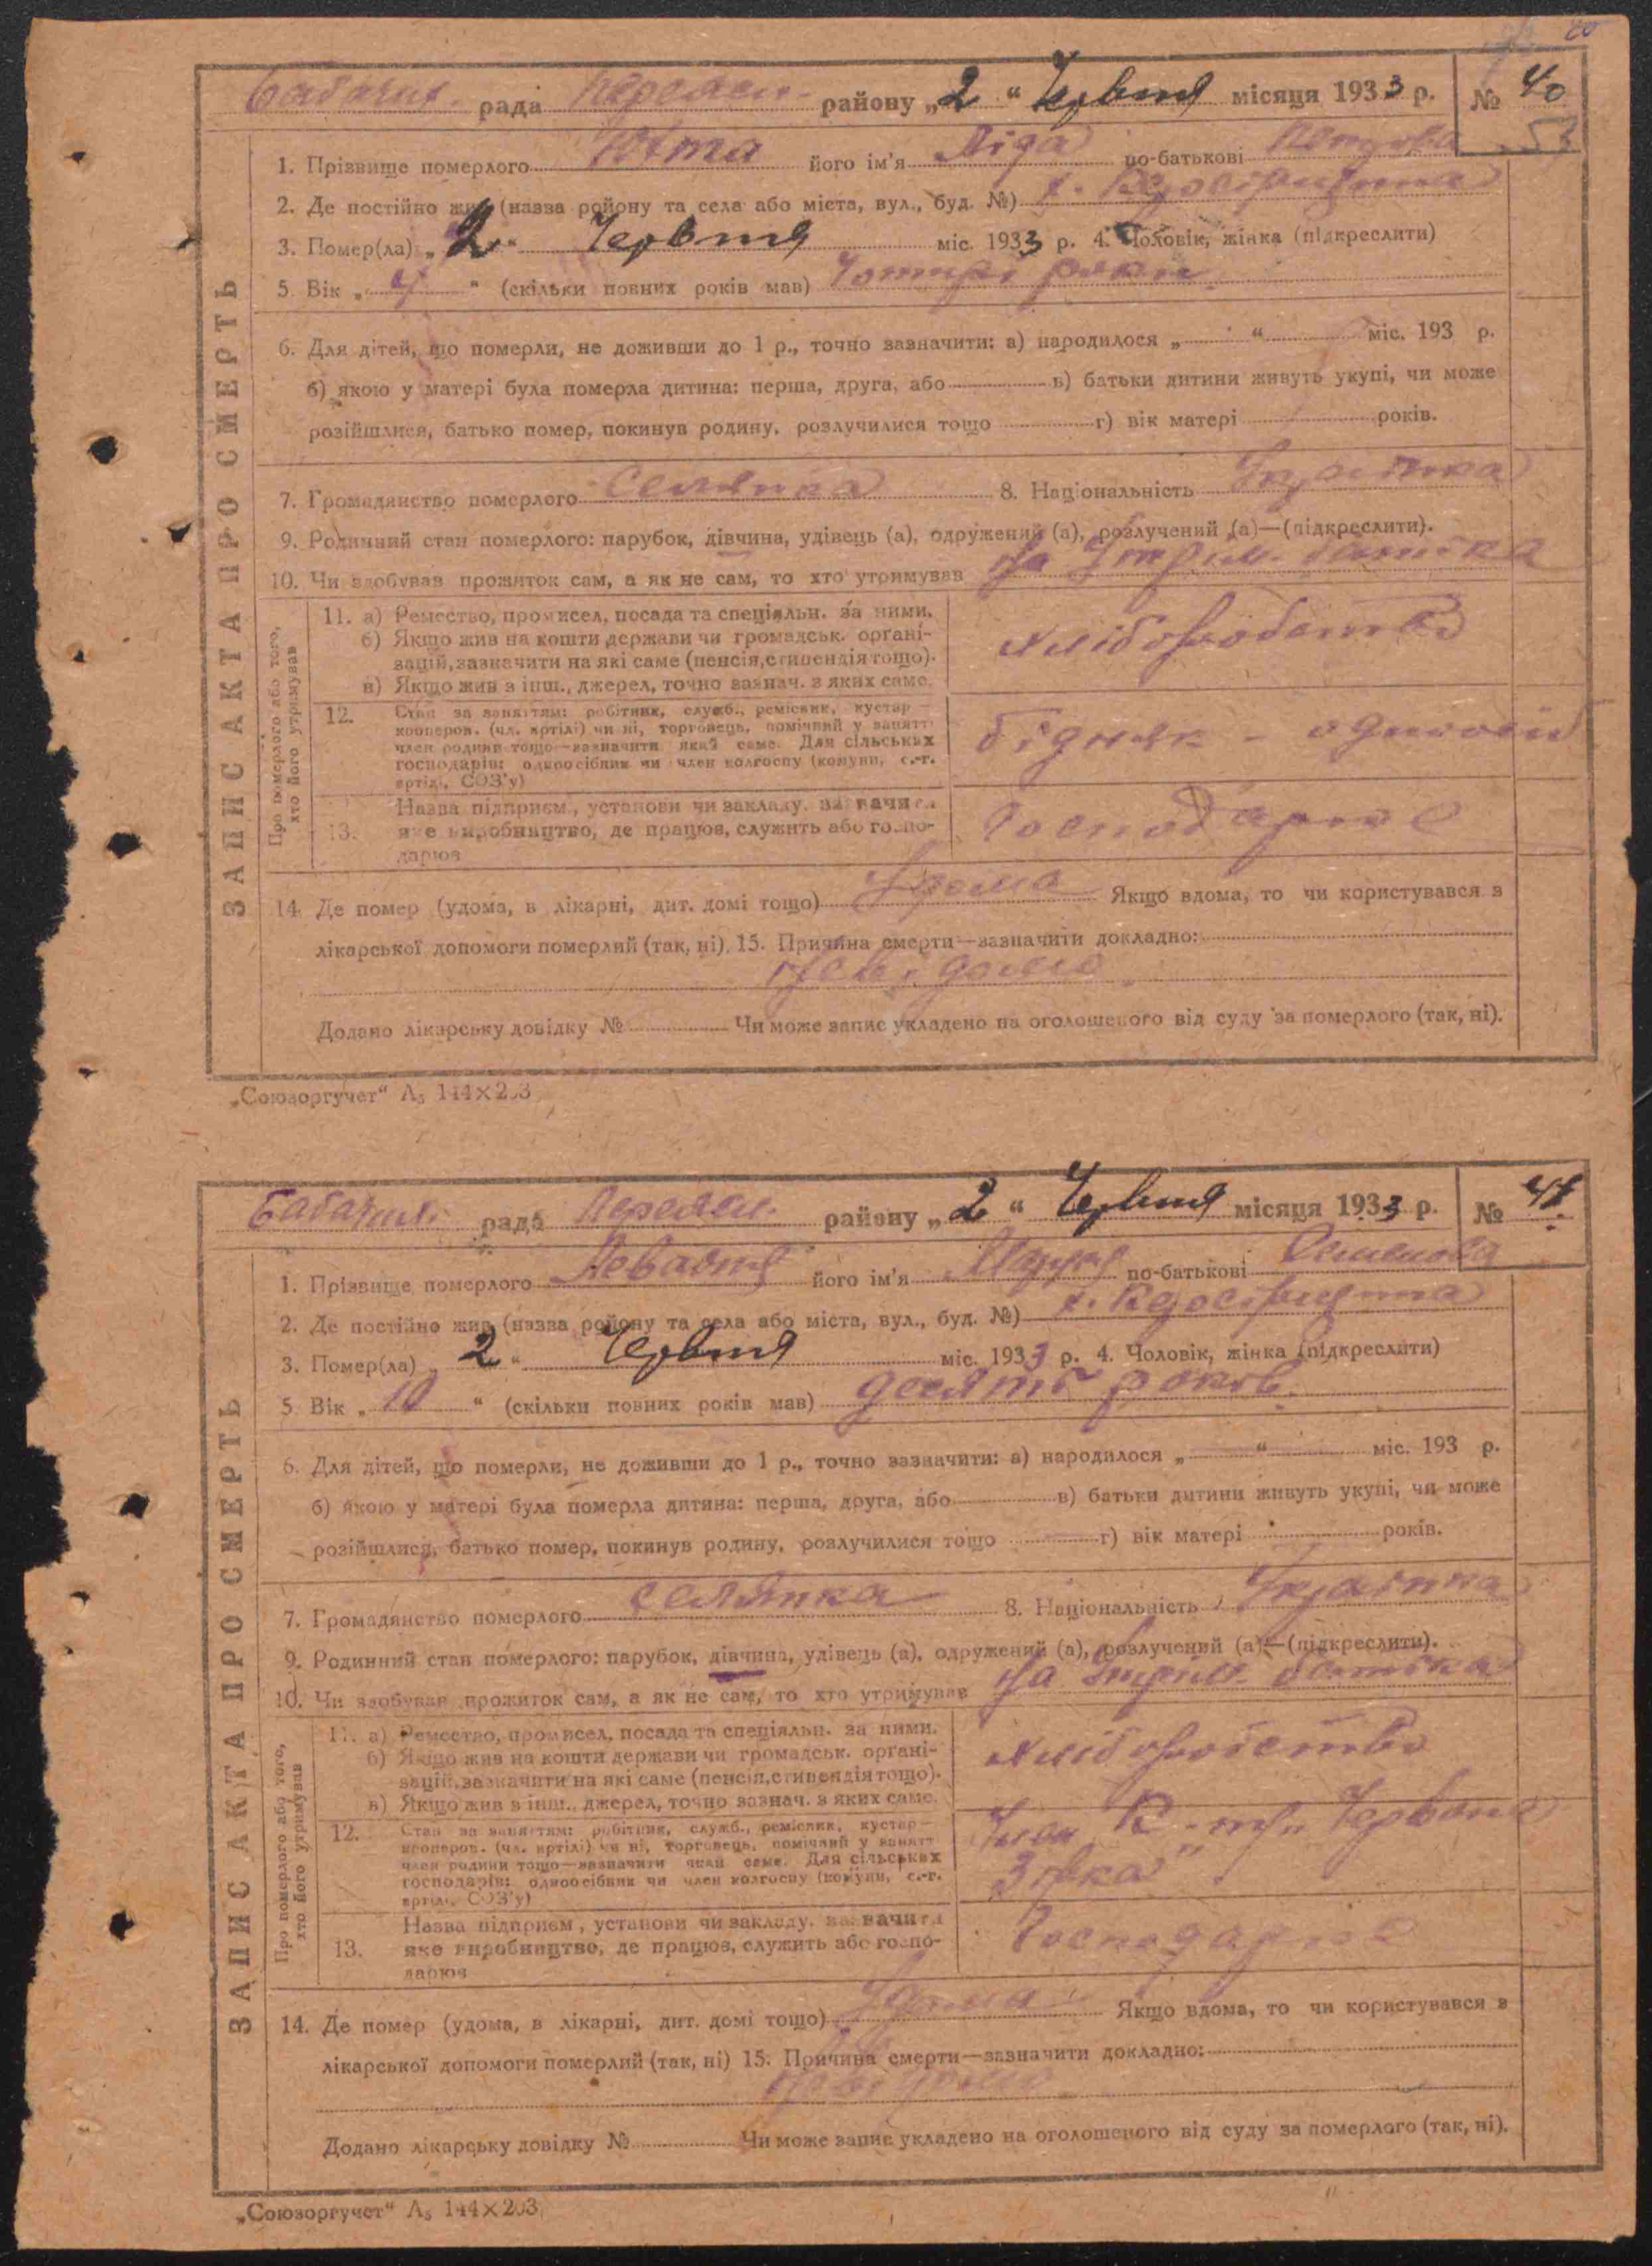 Бабачих. рада Переяс. району „2“ Червня місяця 1933 р. № 40
53
1. Прізвище померлого його ім'я Ліда по-батькові
2. Де постійно жив (назва ройону та села або міста, вул., буд. №) х.
3. Помер(ла) „2“ Червня міс. 1933 р. 4. Чоловік, жінка (підкреслити)
5. Вік „4“ (скільки повних років мав) Чотирі роки
6. Для дітей, що померли, не доживши до 1 р., точно зазначити: а) народилося „ “ міс. 193 р.
б) якою у матері була померла дитина: перша, друга, або в) батьки дитини живуть укупі, чи може
розійшлися, батько помер, покинув родину, розлучилися тощо г) вік матері років.
7. Громадянство померлого Селянка 8. Національність Українка
9. Родинний стан померлого: парубок, дівчина, удівець (а), одружений (а), розлучений (а)—(підкреслити).
10. Чи здобував прожиток сам, а як не сам, то хто утримував На Утрим. батька
ЗАПИС АКТА ПРО СМЕРТЬ
Про померлого або того, хто його утримував
11. а) Ремество, промисел, посада та спеціяльн. за ними.
б) Якщо жив на кошти держави чи громадськ. органі-
зацій, зазначити на які саме (пенсія, стипендія тощо).
в) Якщо жив з інш., джерел, точно зазнач. з яких саме.
хліборобство
12. Стан за заняттям: робітник, служб., ремісник, кустар—
кооперов. (чл. артілі) чи ні, торговець, помічний у занятті
член родини тощо—зазначити який саме. Для сільських
господарів: одноосібник чи член колгоспу (комуни, с.-г.
артілі, СОЗ'у)
бідняк - одноосіб
13. Назва підприєм., установи чи закладу, зазначити
яке виробництво, де працює, служить або госпо-
дарює
Господарює
14. Де помер (удома, в лікарні, дит. домі тощо) Удома Якщо вдома, то чи користувався з
лікарської допомоги померлий (так, ні) 15. Причина смерти—зазначити докладно:
Невідомо
Додано лікарську довідку № Чи може запис укладено на оголошеного від суду за померлого (так, ні).
„Союзоргучет“ А₅ 144×203
Бабачих. рада Переяс. району „2“ Червня місяця 1933 р. № 41
1. Прізвище померлого його ім'я по-батькові Семенова
2. Де постійно жив (назва ройону та села або міста, вул., буд. №) х.
3. Помер(ла) „2“ Червня міс. 1933 р. 4. Чоловік, жінка (підкреслити)
5. Вік „10“ (скільки повних років мав) десять років
6. Для дітей, що померли, не доживши до 1 р., точно зазначити: а) народилося „ “ міс. 193 р.
б) якою у матері була померла дитина: перша, друга, або в) батьки дитини живуть укупі, чи може
розійшлися, батько помер, покинув родину, розлучилися тощо г) вік матері років.
7. Громадянство померлого селянка 8. Національність Українка
9. Родинний стан померлого: парубок, дівчина, удівець (а), одружений (а), розлучений (а)—(підкреслити).
10. Чи здобував прожиток сам, а як не сам, то хто утримував На Утрим. батька
ЗАПИС АКТА ПРО СМЕРТЬ
Про померлого або того, хто його утримував
11. а) Ремество, промисел, посада та спеціяльн. за ними.
б) Якщо жив на кошти держави чи громадськ. органі-
зацій, зазначити на які саме (пенсія, стипендія тощо).
в) Якщо жив з інш., джерел, точно зазнач. з яких саме.
хліборобство
12. Стан за заняттям: робітник, служб., ремісник, кустар—
кооперов. (чл. артілі) чи ні, торговець, помічний у занятті
член родини тощо—зазначити який саме. Для сільських
господарів: одноосібник чи член колгоспу (комуни, с.-г.
артілі, СОЗ'у)
Член К-пу „Червона
Зірка“
13. Назва підприєм., установи чи закладу, зазначити
яке виробництво, де працює, служить або госпо-
дарює
Господарює
14. Де помер (удома, в лікарні, дит. домі тощо) Удома Якщо вдома, то чи користувався з
лікарської допомоги померлий (так, ні) 15. Причина смерти—зазначити докладно:
Невідомо
Додано лікарську довідку № Чи може запис укладено на оголошеного від суду за померлого (так, ні).
„Союзоргучет“ А₅ 144×203